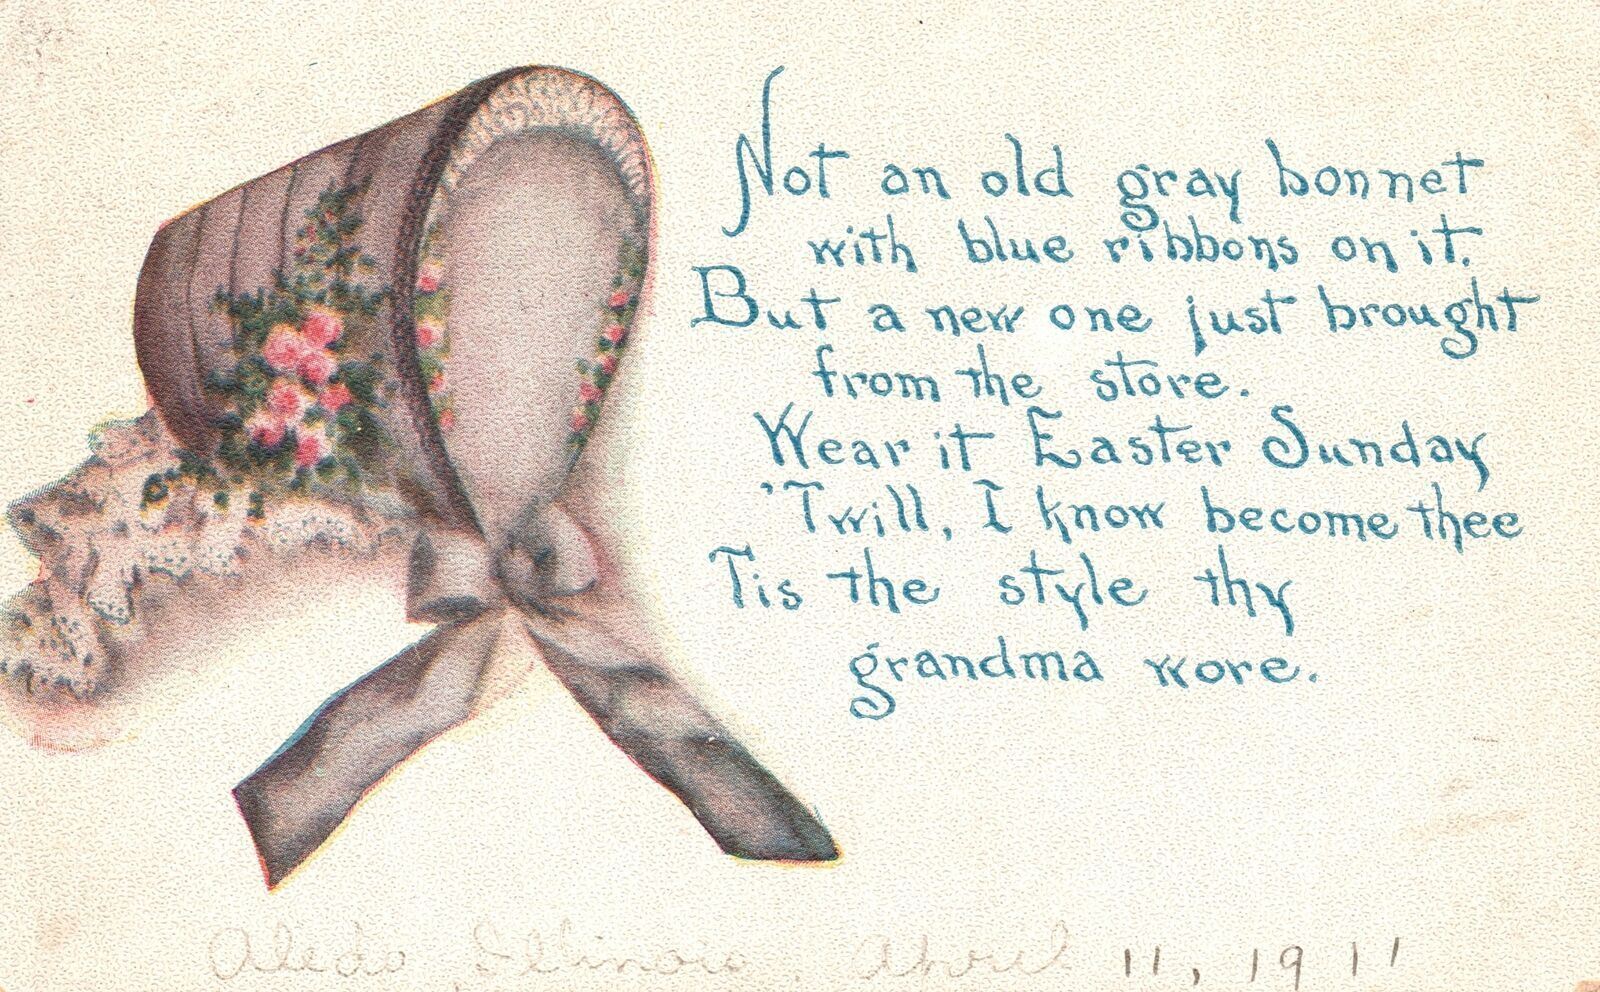 Not an old gray bonnet
with blue ribbons on it.
But a new one just brought
from the store.
Wear it Easter Sunday
'Twill, I know become thee
Tis the style thy
grandma wore.
Aledo Illinois. April 11, 1911